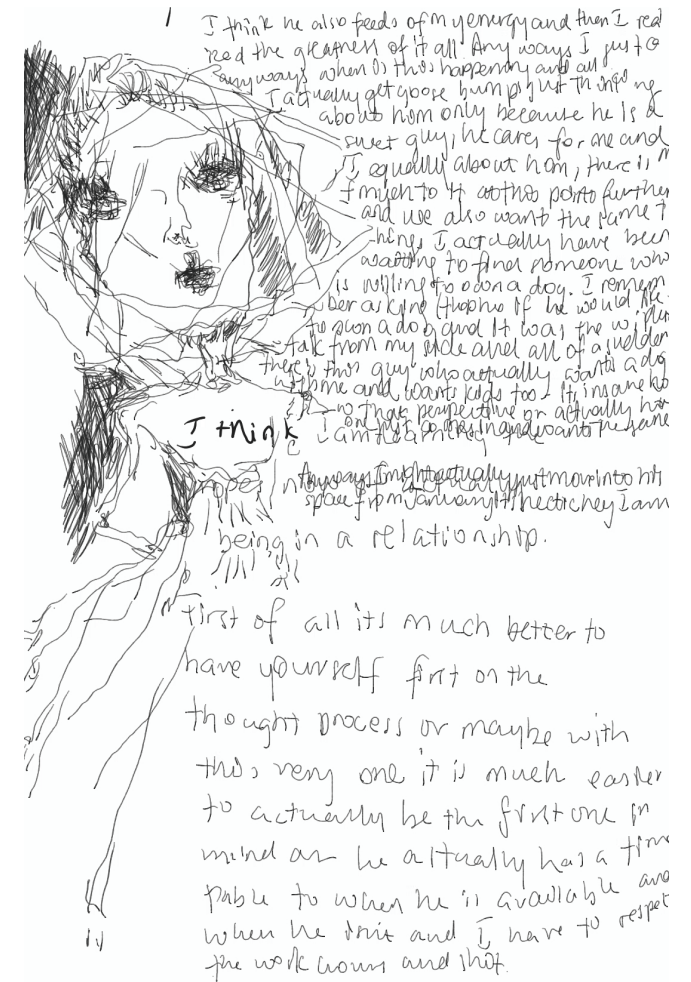 I think he also feeds of m y energy and then I rea
read the greatness of it all. Any ways I just
anyways when is this happening and all
I actually get goose bumps just thinking
about him only because he is a
sweet guy, he cares for me and
I equally about him, there is
much to it at this point further
and we also want the same t
hings I actually have been
waiting to find someone who
is willing to own a dog. I remem
ber asking if he would like
to own a dog and it was the
talk from my side and all of a sudden
there's this guy who actually wants a dog
with me and wants kids too - it insane
that perspective or actually
I think
I am learning
Anyways I might actually just move into his
space from January its hectic hey I am
being in a relationship.
first of all its much better to
have yourself first on the
thought process or maybe with
this very one it is much easier
to actually be the first one in
mind as he actually has a time
table to when he is available and
when he isnit and I have to respet
the work hours and shit.